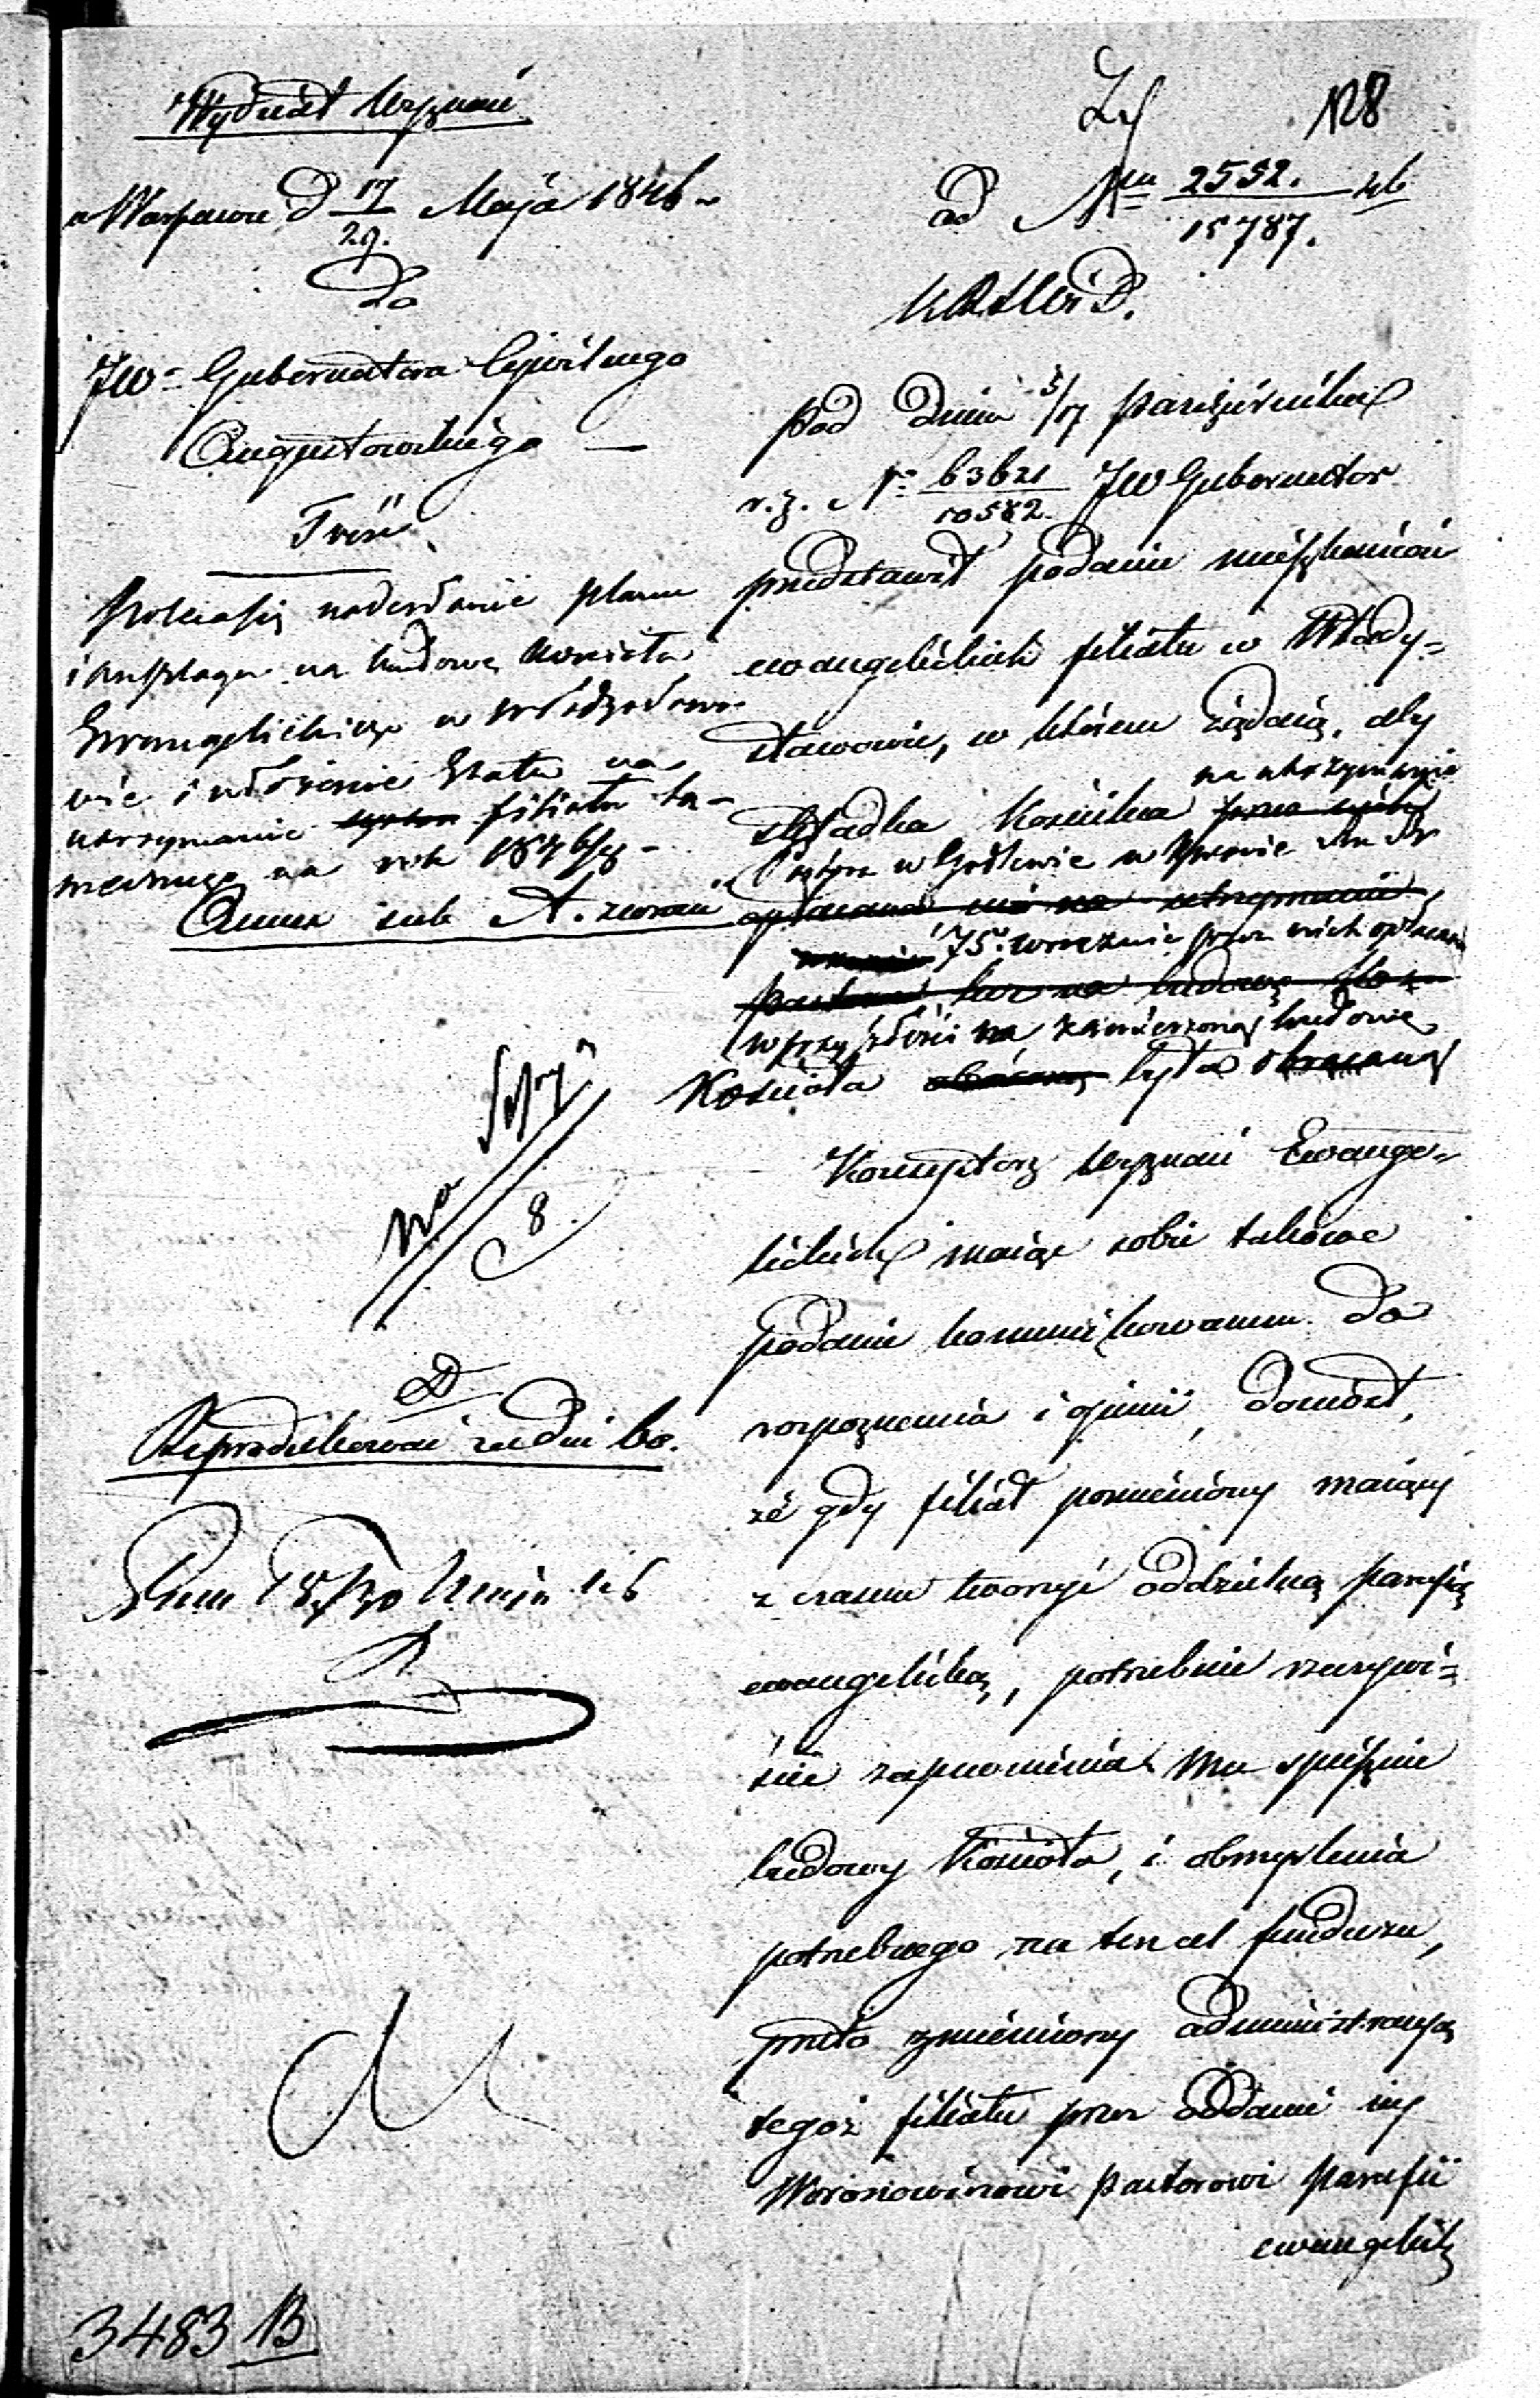 Wydział Wyznań
w Warszawie d 17/29. Maja 1846
do
JW. Gubernatora Cywilnego
Augustowskiego —
Treść
Poleca się nadesłanie planu
i anszlagu na budowę kościoła
Ewangelickiego w Władysławo-
wie i ułożenie Etatu na
utrzymanie filiału ta-
mecznego na rok 1846/
Annex sub A. zwrócić
8
Reprodukować za dni 60.
3483 B
128
ad N 2552./15787. 46
K.R.S.W.i D.
Pod dniem 5/17 Października
r.z. N 63621/10582. JW Gubernator
przedstawił podanie mieszkańców
ewangelickich filiału w Włady=
sławowie, w którem żądają, aby
na utrzymanie
składka kościelna
Pastora w Godlewie w kwocie
opłacana nie na utrzymanie
75. corocznie przez nich opłacana
pastora lecz na budowę
w przyszłości na zamierzoną budowę
Kościoła była obracaną
Konsystorz wyznań Ewange=
lickich mając sobie takowe
podanie komunikowanem do
rozpoznania i opinii, doniósł,
że gdy filiał pomieniony mający
z czasem tworzyć oddzielną parafią
ewangelicką, potrzebnie rzeczywi=
ście zapewnienia mu spiesznie
budowy Kościoła, i obmyślenia
potrzebnego na ten cel funduszu,
przeto zmieniony administracyą
tegoż filiału przez oddanie jej
pastorowi parafii
ewangelick